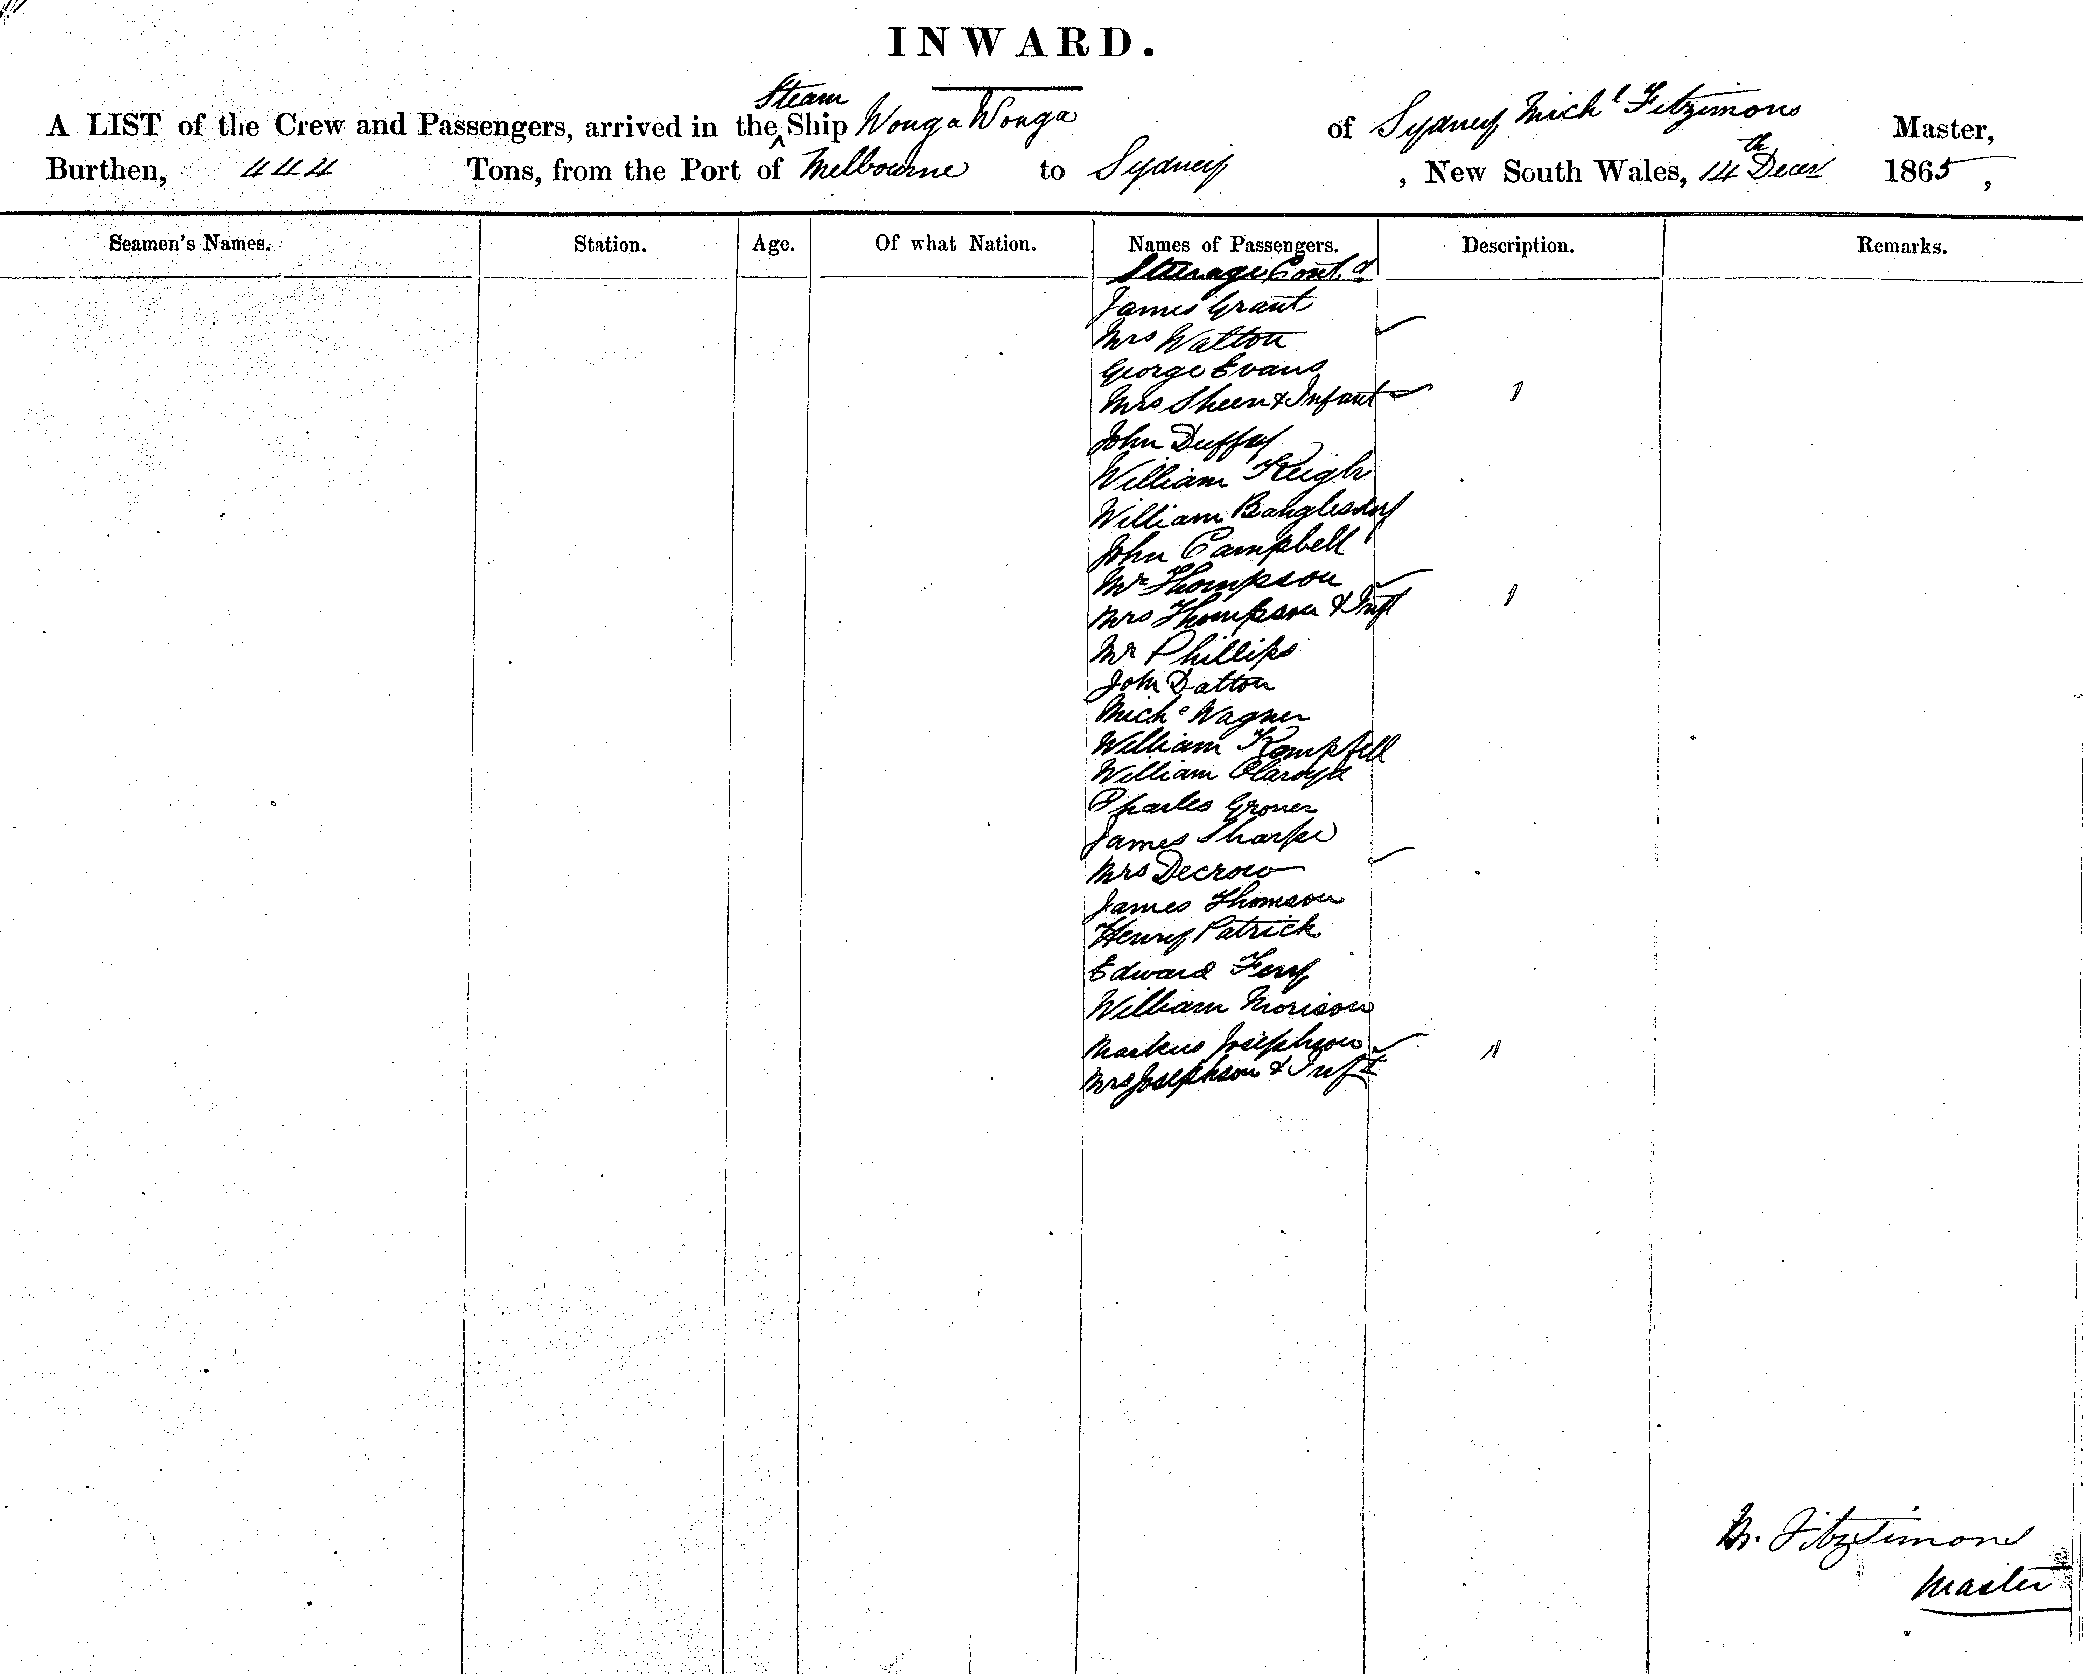 INWARD.
A LIST of the Crew and Passengers, arrived in the Steam Ship Wonga Wonga of Sydney Michl Fitzimons Master,
Burthen, 444 Tons, from the Port of Melbourne to Sydney , New South Wales, 14th Decer 1865,
Seamen's Names. Station. Age. Of what Nation. Names of Passengers. Description. Remarks.
Steerage Contd
James Grant
Mrs Walton
George Evans
Mrs Sheen & Infant 1
John Duffay
William Keigh
William
John Campbell
Mr Thompson
Mrs Thompson & Inft 1
Mr Phillips
John Dalton
Mich Wagner
William Kampfell
William
Charles Grover
James Sharpe
Mrs Decrow
James Thomson
Henry Patrick
Edward
William Morison
Markus Josephson
Mrs Josephson & Inft 1
M. Fitzsimons
Master